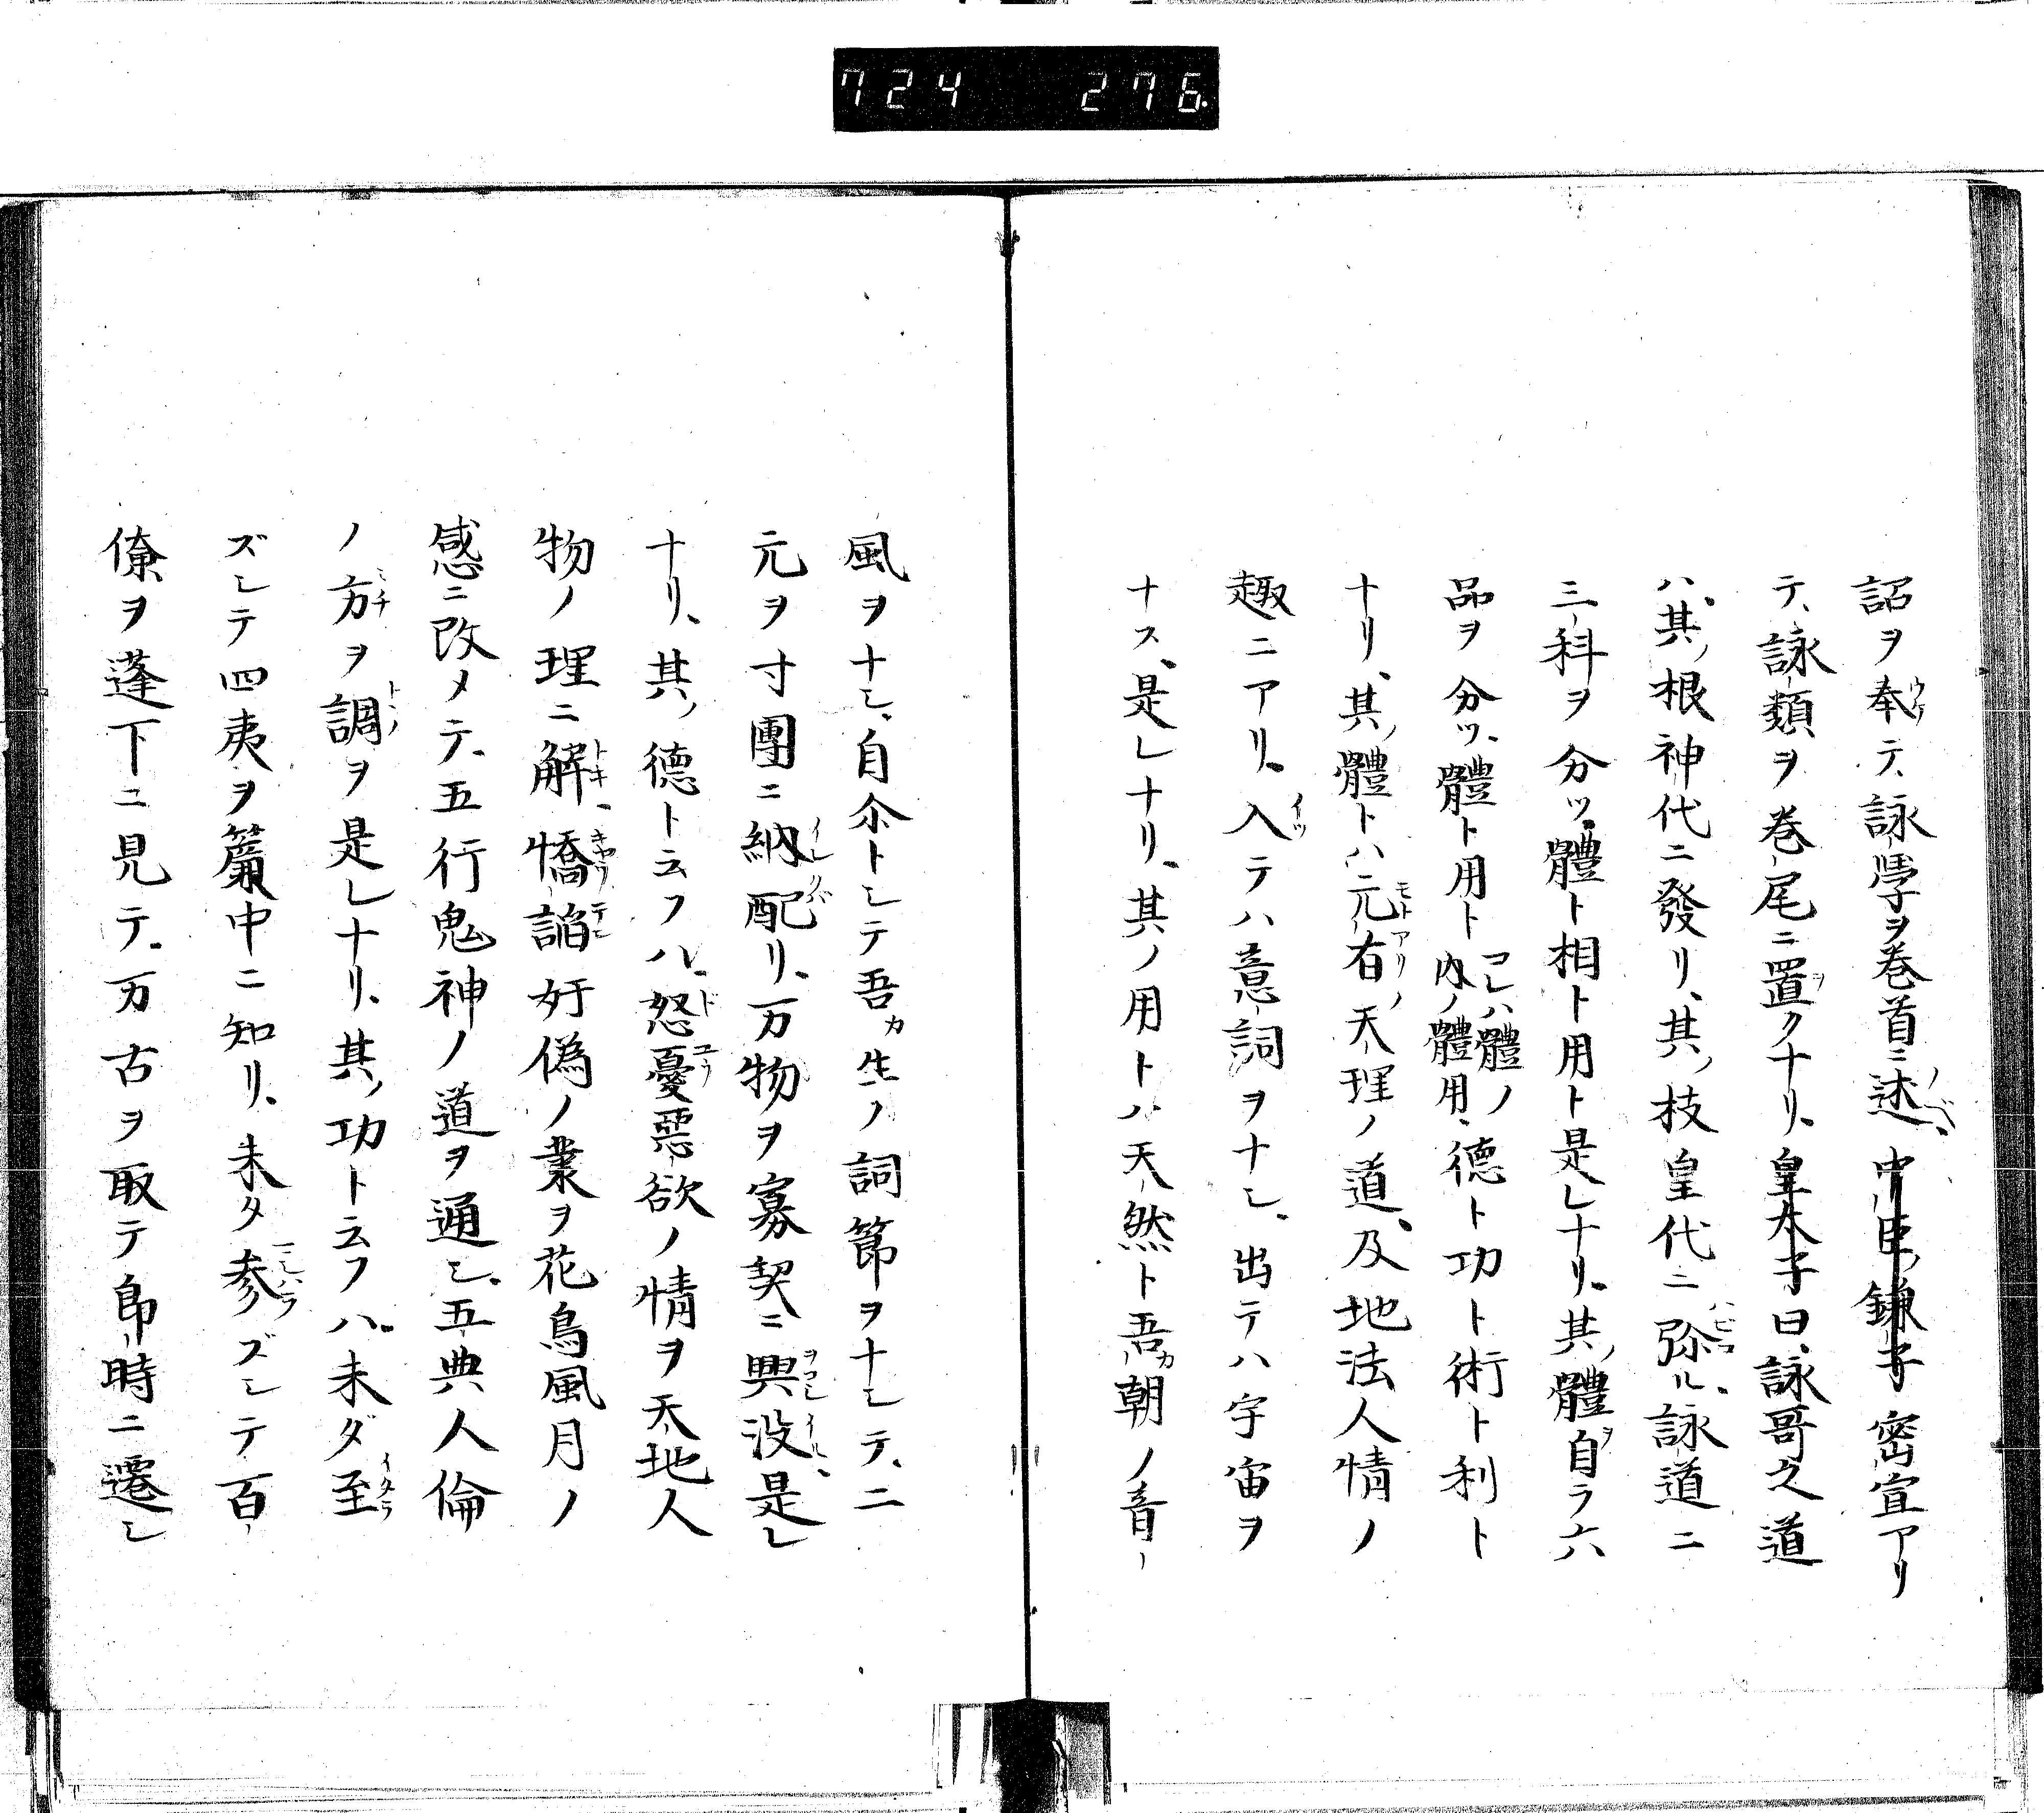 724 276
詔ヲ奉テ、詠學ヲ巻首ニ述、中臣鎌子密宣アリ
テ、詠類ヲ巻尾ニ置クナリ、皇太子曰、詠哥之道
ハ、其ノ根神代ニ發リ、其ノ枝皇代ニ弥ル、詠道ニ
三科ヲ分ツ、體ト相ト用ト是レナリ、其ノ體自ラ六
品ヲ分ツ、體ト用ト コレハ體ノ内ノ體用、德ト功ト術ト利ト
ナリ、其ノ體トハ元有ノ天理ノ道、及地法人情ノ
趣ニアリ、入テハ意詞ヲナシ、出テハ宇宙ヲ
ナス、是レナリ、其ノ用トハ天然ト吾カ朝ノ音ノ
風ヲナシ、自尒トシテ吾カ生ノ詞節ヲナシテ、二
元ヲ寸團ニ納配リ、万物ヲ寡契ニ興没、是レ
ナリ、其ノ德ト云フハ、怒憂惡欲ノ情ヲ天地人
物ノ理ニ解、憍諂奸偽ノ業ヲ花鳥風月ノ
感ニ改メテ、五行鬼神ノ道ヲ通シ、五典人倫
ノ方ヲ調ヲ是レナリ、其ノ功ト云フハ、未ダ至
ズシテ四夷ヲ簾中ニ知リ、未タ参ズシテ百
僚ヲ蓬下ニ見テ、万古ヲ取テ即時ニ遷シ